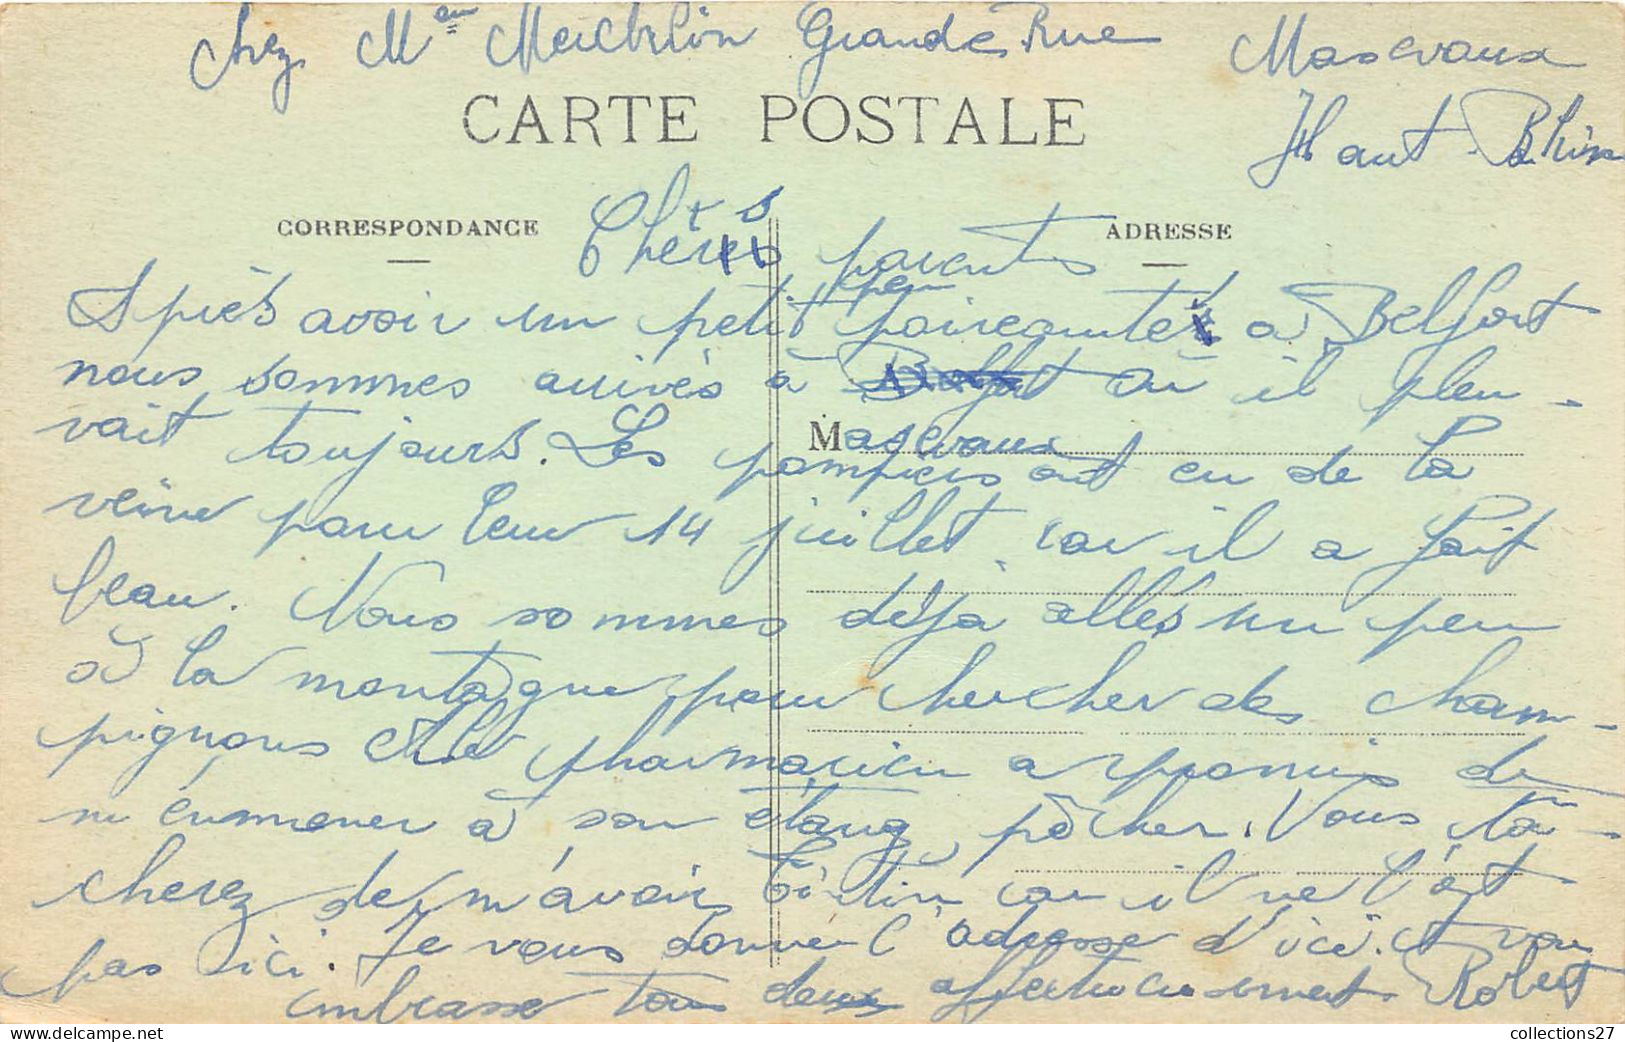 Chez Mᵉ Grande Rue Masevaux
CARTE POSTALE
Haut-Rhin
CORRESPONDANCE
ADRESSE
Chers parents
Après avoir un petit peu à Belfort
nous sommes arrivés à où il pleu-
vait toujours. Les pompiers ont eu de la
Masevaux
veine pour leur 14 juillet, car il a fait
beau. Nous sommes déjà allés un peu
à la montagne pour chercher des cham-
pignons et le pharmacien a promis de
m'emmener à son étang pêcher. Vous tâ-
cherez de m'avoir Tintin car il ne l'ont
pas ici. Je vous donne l'adresse d'ici. et vous
embrasse tous deux affectueusement Robert
collections27